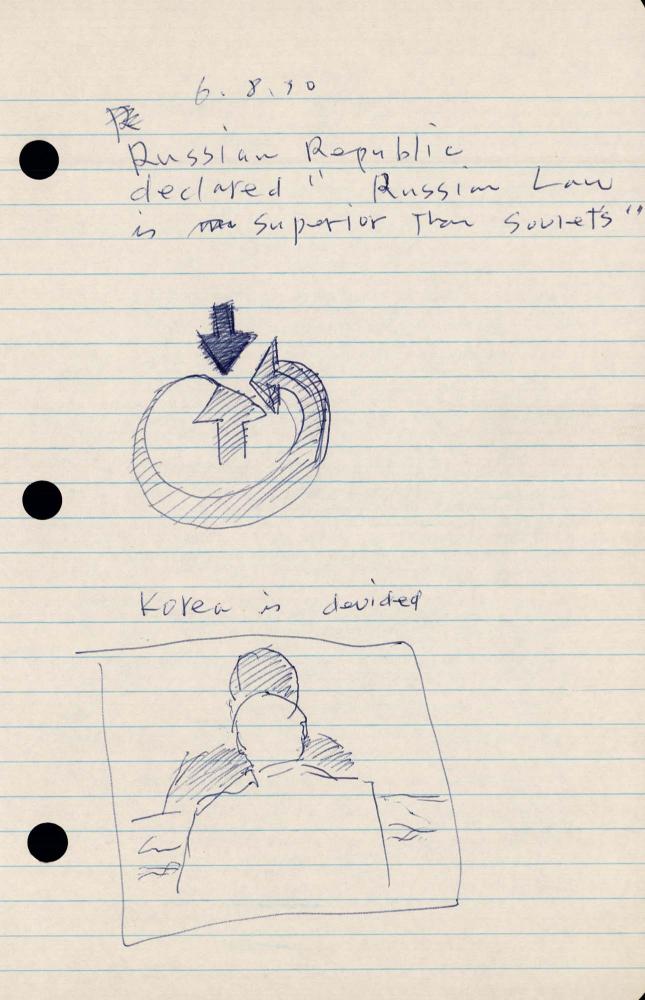 6.8.90
Russian Republic
declared " Russian Law
is superior than Soviets"
Korea is devided